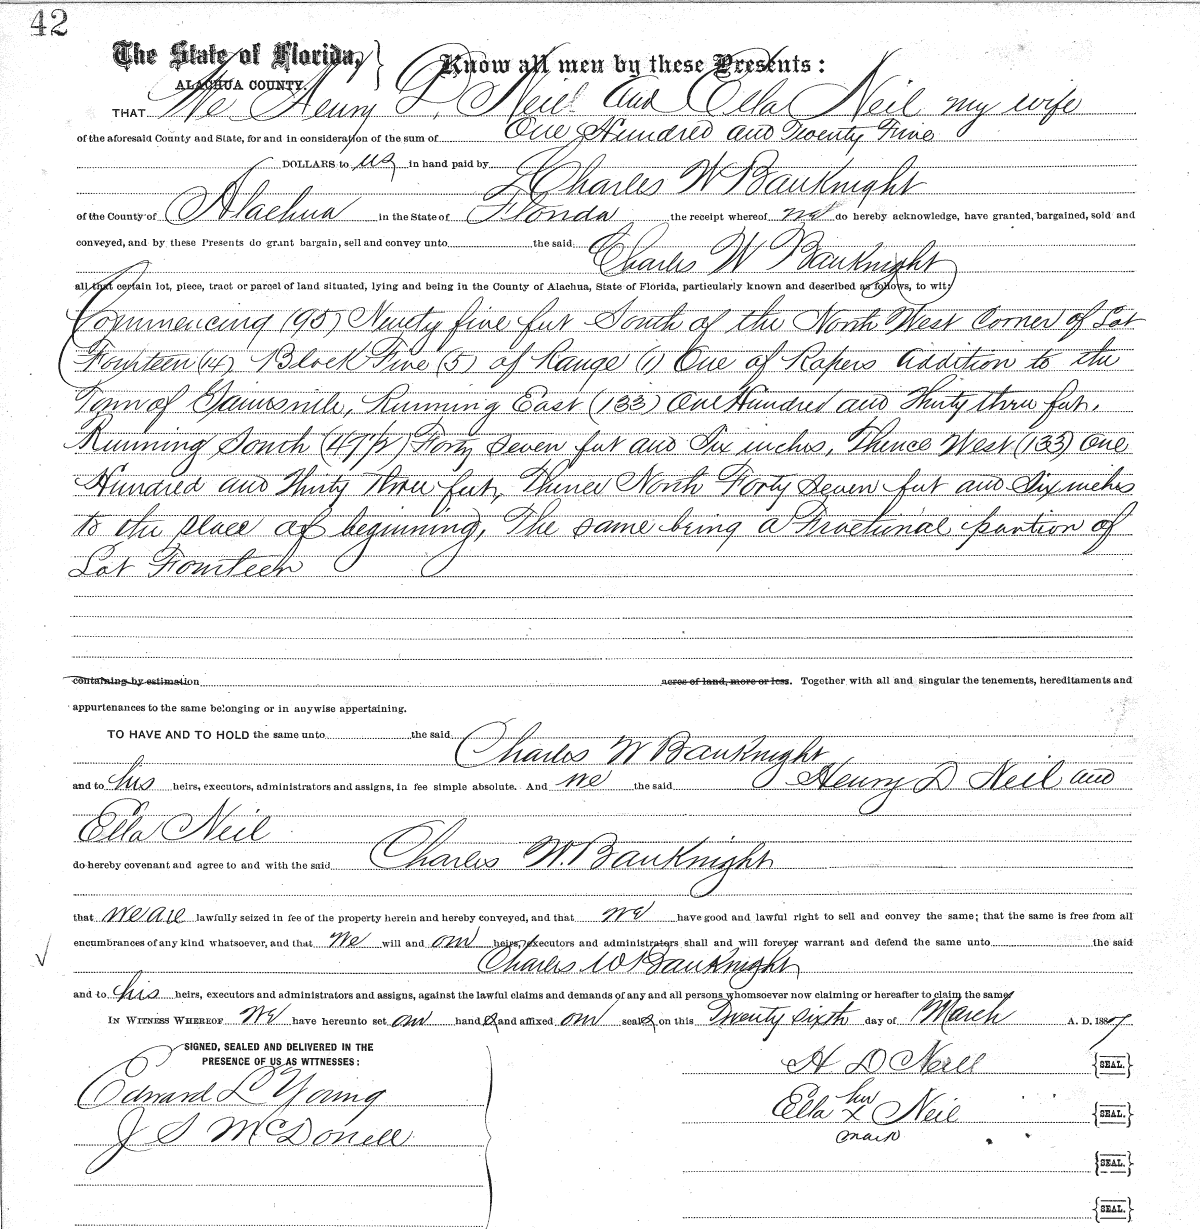 42
The State of Florida, } Know all men by these Presents :
ALACHUA COUNTY.
THAT We Henry D. Neil and Ella Neil my wife
of the aforesaid County and State, for and in consideration of the sum of One Hundred and Twenty Five
DOLLARS to us in hand paid by
Charles W Bauknight
of the County of Alachua in the State of Florida the receipt whereof we do hereby acknowledge, have granted, bargained, sold and
conveyed, and by these Presents do grant bargain, sell and convey unto the said
Charles W Bauknight
all that certain lot, piece, tract or parcel of land situated, lying and being in the County of Alachua, State of Florida, particularly known and described as follows, to wit:
Commencing (95) Ninety five feet South of the North West Corner of Lot
Fourteen (14) Block Five (5) of Range (1) One of Ropers addition to the
Town of Gainesville, Running East (133) One Hundred and Thirty three feet,
Running South (47½) Forty Seven feet and Six inches, Thence West (133) One
Hundred and Thirty Three feet, Thence North Forty Seven feet and Six inches
to the place of beginning, The same being a Fractional portion of
Lot Fourteen
containing by estimation acres of land, more or less. Together with all and singular the tenements, hereditaments and
appurtenances to the same belonging or in anywise appertaining.
TO HAVE AND TO HOLD the same unto the said
Charles W Bauknight
and to his heirs, executors, administrators and assigns, in fee simple absolute. And we the said Henry D Neil and
Ella Neil
do hereby covenant and agree to and with the said Charles W. Bauknight
that we are lawfully seized in fee of the property herein and hereby conveyed, and that we have good and lawful right to sell and convey the same; that the same is free from all
encumbrances of any kind whatsoever, and that we will and our heirs, executors and administrators shall and will forever warrant and defend the same unto the said
Charles W Bauknight
and to his heirs, executors and administrators and assigns, against the lawful claims and demands of any and all persons whomsoever now claiming or hereafter to claim the same
IN WITNESS WHEREOF We have hereunto set our hands and affixed our seals on this Twenty sixth day of March A. D. 1887
SIGNED, SEALED AND DELIVERED IN THE
PRESENCE OF US AS WITNESSES :
H D Neill {SEAL.}
Edward L Young
her
Ella x Neil {SEAL.}
mark
J S McDonell
{SEAL.}
{SEAL.}